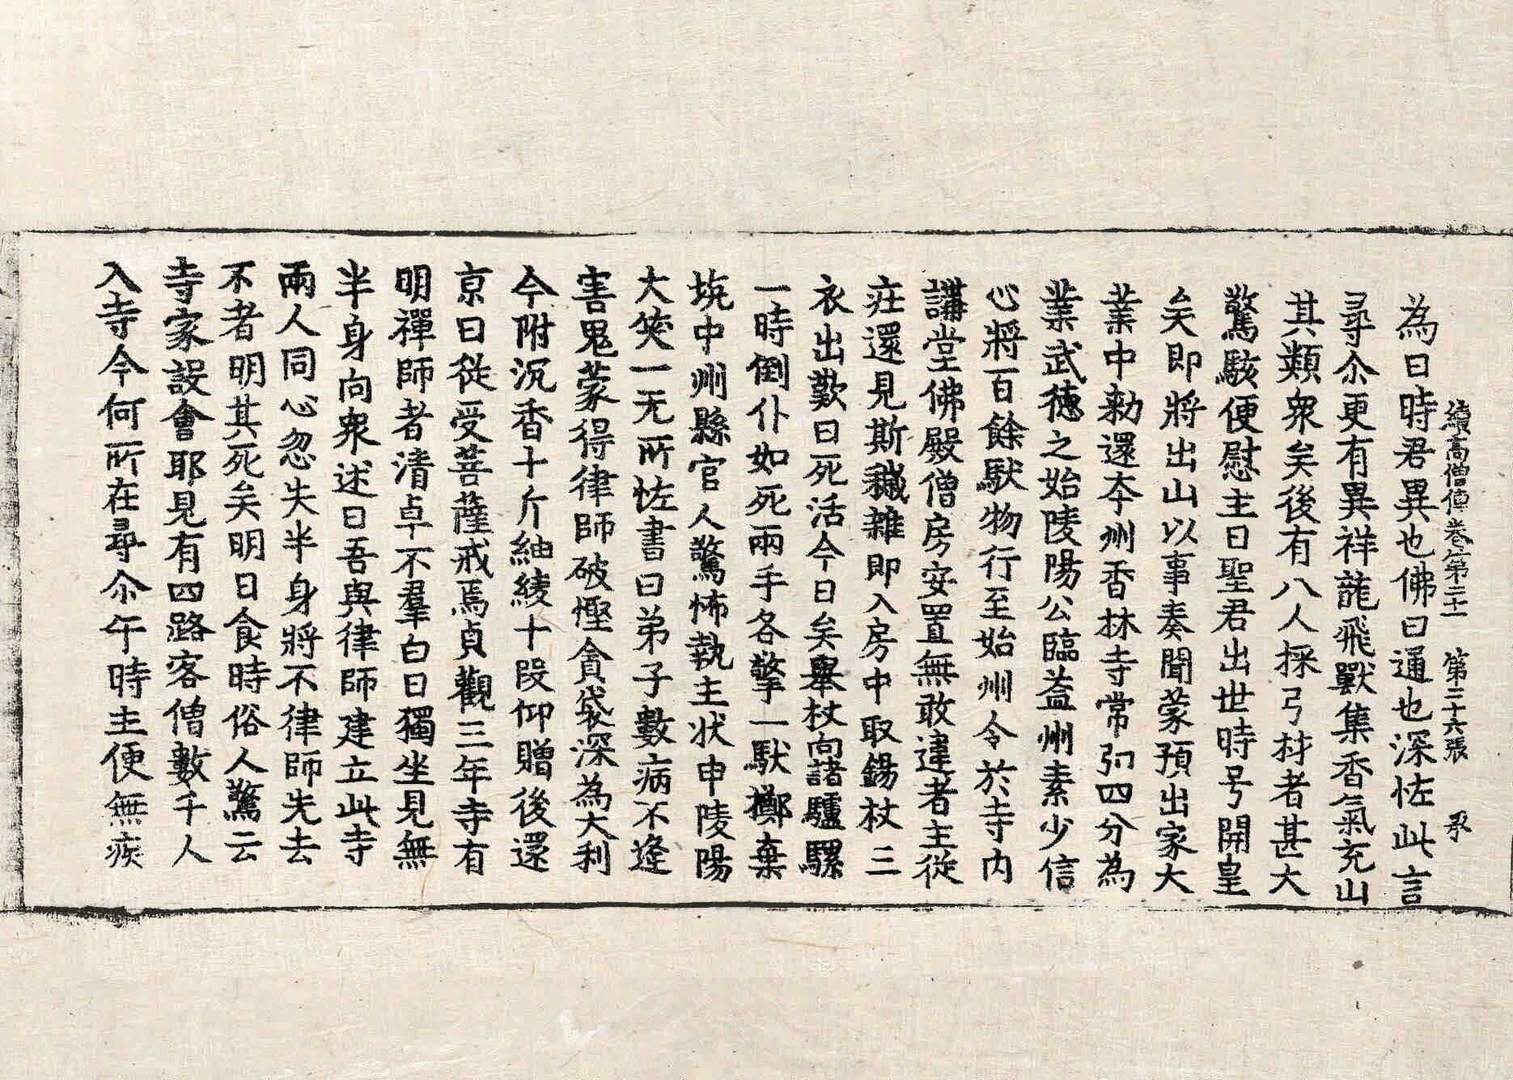 續高僧傳卷第二十一 第三十六張 承
為日時君異也佛日通也深怪此言
尋尒更有異祥龍飛獸集香氣充山
其類衆矣後有八人採弓材者甚大
驚駭便慰主曰聖君出世時号開皇
矣即將出山以事奏聞蒙預出家大
業中勑還本州香林寺常弘四分為
業武德之始陵陽公臨益州素少信
心將百餘馱物行至始州令於寺内
講堂佛殿僧房安置無敢違者主從
莊還見斯穢雜即入房中取錫杖三
衣出歎曰死活今日矣舉杖向諸驢騾
一時倒仆如死兩手各擎一馱擲棄
坑中州縣官人驚怖執主狀申陵陽
大笑一无所怪書曰弟子數病不逢
害鬼蒙得律師破慳貪袋深為大利
今附沉香十斤紬綾十段仰贈後還
京日從受菩薩戒焉貞觀三年寺有
明禪師者清卓不羣白日獨坐見無
半身向衆述曰吾與律師建立此寺
兩人同心忽失半身將不律師先去
不者明其死矣明日食時俗人驚云
寺家設會耶見有四路客僧數千人
入寺今何所在尋尒午時主便無疾